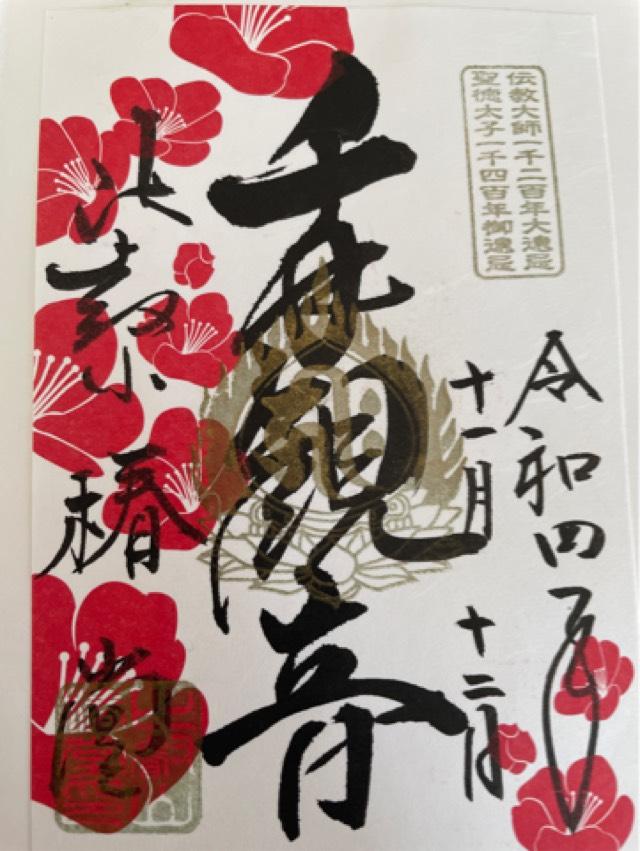 伝教大師一千二百年大遠忌
聖徳太子一千四百年御遠忌
令和四年
十一月十二日
千手観音
比叡山 椿堂